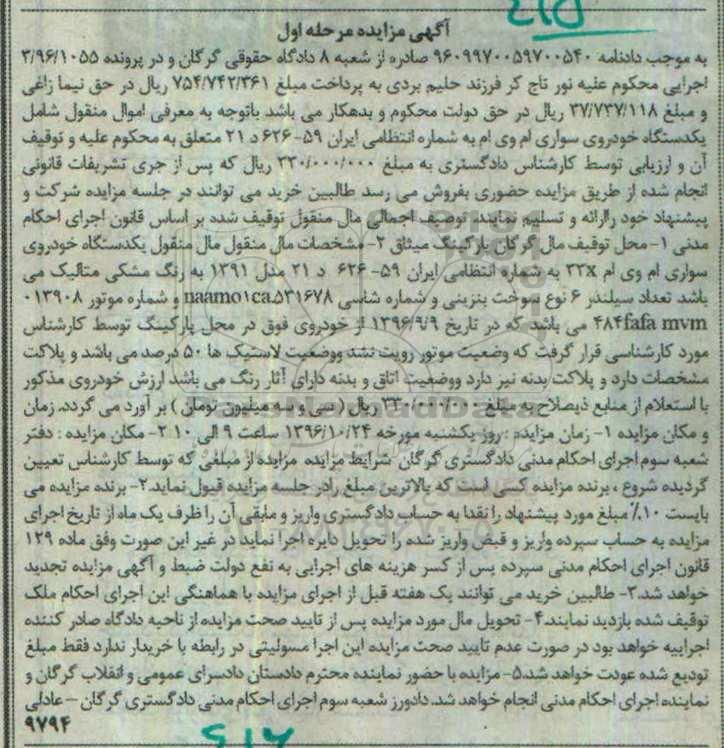 ۲۱۵
آگهی مزایده مرحله اول
به موجب دادنامه ۹۶۰۹۹۷۰۰۵۹۷۰۰۵۴۰ صادره از شعبه ۸ دادگاه حقوقی گرگان و در پرونده ۳/۹۶/۱۰۵۵
اجرایی محکوم علیه نور تاج کر فرزند حلیم بردی به پرداخت مبلغ ۷۵۴/۷۴۲/۳۶۱ ریال در حق نیما زاغی
و مبلغ ۳۷/۷۳۷/۱۱۸ ریال در حق دولت محکوم و بدهکار می باشد باتوجه به معرفی اموال منقول شامل
یکدستگاه خودروی سواری ام وی ام به شماره انتظامی ایران ۵۹- ۶۲۶ د ۲۱ متعلق به محکوم علیه و توقیف
آن و ارزیابی توسط کارشناس دادگستری به مبلغ ۳۳۰/۰۰۰/۰۰۰ ریال که پس از جری تشریفات قانونی
انجام شده از طریق مزایده حضوری بفروش می رسد طالبین خرید می توانند در جلسه مزایده شرکت و
پیشنهاد خود راارائه و تسلیم نمایند. توصیف اجمالی مال منقول توقیف شده بر اساس قانون اجرای احکام
مدنی ۱- محل توقیف مال گرگان پارکینگ میثاق ۲- مشخصات مال منقول مال منقول یکدستگاه خودروی
سواری ام وی ام ۳۳x به شماره انتظامی ایران ۵۹- ۶۲۶ د ۲۱ مدل ۱۳۹۱ به رنگ مشکی متالیک می
باشد تعداد سیلندر ۶ نوع سوخت بنزینی و شماره شاسی naamo۱ca.۵۳۱۶۷۸ و شماره موتور ۰۱۳۹۰۸
۴۸۴fafa mvm می باشد. که در تاریخ ۱۳۹۶/۹/۹ از خودروی فوق در محل پارکینگ توسط کارشناس
مورد کارشناسی قرار گرفت که وضعیت موتور رویت نشد ووضعیت لاستیک ها ۵۰ درصد می باشد و پلاکت
مشخصات دارد و پلاکت بدنه نیز دارد ووضعیت اتاق و بدنه دارای آثار رنگ می باشد ارزش خودروی مذکور
با استعلام از منابع ذیصلاح به مبلغ ۳۳۰/۰۰۰/۰۰۰ ریال ( سی و سه میلیون تومان ) بر آورد می گردد. زمان
و مکان مزایده ۱- زمان مزایده : روز یکشنبه مورخه ۱۳۹۶/۱۰/۲۴ ساعت ۹ الی ۱۰ ۲- مکان مزایده : دفتر
شعبه سوم اجرای احکام مدنی دادگستری گرگان شرایط مزایده مزایده از مبلغی که توسط کارشناس تعیین
گردیده شروع ، برنده مزایده کسی است که بالاترین مبلغ رادر جلسه مزایده قبول نماید.۲- برنده مزایده می
بایست ۱۰٪ مبلغ مورد پیشنهاد را نقدا به حساب دادگستری واریز و مابقی آن را ظرف یک ماه از تاریخ اجرای
مزایده به حساب سپرده واریز و قبض واریز شده را تحویل دایره اجرا نماید در غیر این صورت وفق ماده ۱۲۹
قانون اجرای احکام مدنی سپرده پس از کسر هزینه های اجرایی به نفع دولت ضبط و آگهی مزایده تجدید
خواهد شد.۳- طالبین خرید می توانند یک هفته قبل از اجرای مزایده با هماهنگی این اجرای احکام ملک
توقیف شده بازدید نمایند.۴- تحویل مال مورد مزایده پس از تایید صحت مزایده از ناحیه دادگاه صادر کننده
اجراییه خواهد بود در صورت عدم تایید صحت مزایده این اجرا مسولیتی در رابطه با خریدار ندارد فقط مبلغ
تودیع شده عودت خواهد شد.۵- مزایده با حضور نماینده محترم دادستان دادسرای عمومی و انقلاب گرگان و
نماینده اجرای احکام مدنی انجام خواهد شد. دادورز شعبه سوم اجرای احکام مدنی دادگستری گرگان – عادلی
۹۷۹۴
ParsNamadData